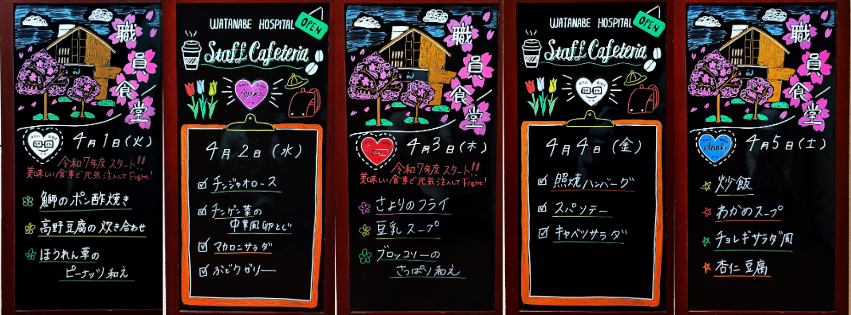 職員食堂
4月1日(火)
令和7年度スタート!!
美味しい食事で元気注入してFight!
鰤のポン酢焼き
高野豆腐の炊き合わせ
ほうれん草の
ピーナッツ和え
WATANABE HOSPITAL
OPEN
Staff Cafeteria
4月2日(水)
チンジャオロース
チンゲン菜の
中華風卵とじ
マカロニサラダ
ぶどうゼリー
職員食堂
4月3日(木)
令和7年度スタート!!
美味しい食事で元気注入してFight!
さよりのフライ
豆乳スープ
ブロッコリーの
さっぱり和え
WATANABE HOSPITAL
OPEN
Staff Cafeteria
4月4日(金)
照焼ハンバーグ
スパソテー
キャベツサラダ
職員食堂
4月5日(土)
炒飯
わかめスープ
チョレギサラダ風
杏仁豆腐